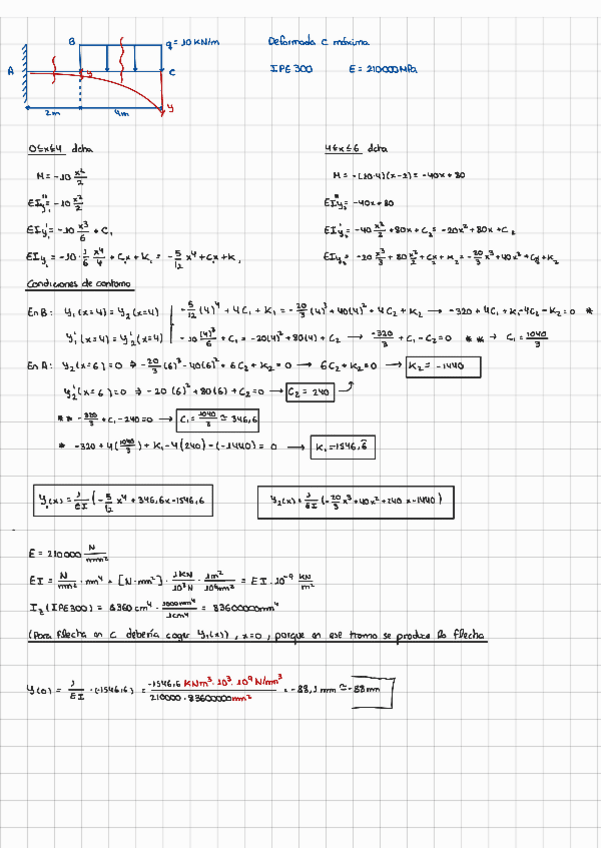 B q = 10 KN/m Deformada C máxima
A y C IPE 300 E = 210000 MPa
y
2m 4m
0≤x≤4 dcha 4≤x≤6 dcha
M = -10 x²/2 M = -(10·4)(x-2) = -40x + 80
EIy₁'' = -10 x²/2 EIy₂'' = -40x + 80
EIy₁' = -10 x³/6 + C₁ EIy₂' = -40 x²/2 + 80x + C₂ = -20x² + 80x + C₂
EIy₁ = -10 · 1/6 x⁴/4 + C₁x + K₁ = -5/12 x⁴ + C₁x + K₁ EIy₂ = -20 x³/3 + 80 x²/2 + C₂x + K₂ = -20/3 x³ + 40x² + C₂x + K₂
Condiciones de contorno
En B: y₁(x=4) = y₂(x=4) | -5/12 (4)⁴ + 4C₁ + K₁ = -20/3 (4)³ + 40(4)² + 4C₂ + K₂ → -320 + 4C₁ + K₁ - 4C₂ - K₂ = 0 *
y₁'(x=4) = y₂'(x=4) | -10 (4)³/6 + C₁ = -20(4)² + 80(4) + C₂ → -320/3 + C₁ - C₂ = 0 ** → C₁ = 1040/3
En A: y₂(x=6) = 0 ⇒ -20/3 (6)³ - 40(6)² + 6C₂ + K₂ = 0 → 6C₂ + K₂ = 0 → K₂ = -1440
y₂'(x=6) = 0 ⇒ -20 (6)² + 80(6) + C₂ = 0 → C₂ = 240
** -320/3 + C₁ - 240 = 0 → C₁ = 1040/3 ≃ 346,6
* -320 + 4(1040/3) + K₁ - 4(240) - (-1440) = 0 → K₁ = -1546,6
y₁(x) = 1/EI (-5/12 x⁴ + 346,6x - 1546,6 y₂(x) = 1/EI (-20/3 x³ + 40x² + 240x - 1440)
E = 210000 N/mm²
EI = N/mm² · mm⁴ = [N·mm²] · 1KN/10³N · 1m²/10⁶mm² = EI · 10⁻⁹ KN/m²
I_z (IPE300) = 8360 cm⁴ · 10000mm⁴/1cm⁴ = 83600000mm⁴
(Para flecha en C debería coger y₁(x)), x=0, porque en ese tramo se produce la flecha
y(0) = 1/EI · (-1546,6) = -1546,6 KNm³ · 10³ · 10⁹ N/mm³ / 210000 · 83600000mm² = -88,1 mm ≃ -88mm